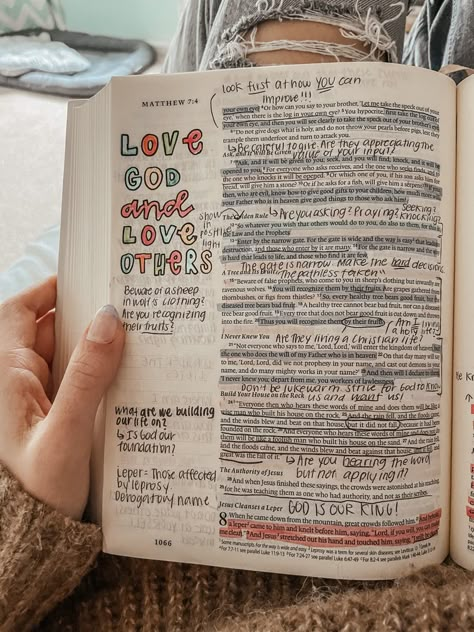 MATTHEW 7:4
LOVE
GOD
and
LOVE
OTHERS
show
in
positive
light
Beware of asheep
in wolf's clothing?
Are you recognizing
their fruits?
What are we building
our life on?
↳ Is God our
foundation?
Leper = Those affected
by leprosy
Derogatory name
1066
look first at how you can
improve!!!
your own eye? 4 Or how can you say to your brother, 'Let me take the speck out of your
eye,' when there is the log in your own eye? 5 You hypocrite, first take the log out of
your own eye, and then you will see clearly to take the speck out of your brother's eye.
6 "Do not give dogs what is holy, and do not throw your pearls before pigs, lest they
trample them underfoot and turn to attack you.
↳ Be careful to give. Are they appreciating the
value of your input?
Ask, and It Will Be Given
7 "Ask, and it will be given to you; seek, and you will find; knock, and it will be
opened to you. 8 For everyone who asks receives, and the one who seeks finds, and to
the one who knocks it will be opened. 9 Or which one of you, if his son asks him for
bread, will give him a stone? 10 Or if he asks for a fish, will give him a serpent? 11 If you
then, who are evil, know how to give good gifts to your children, how much more will
your Father who is in heaven give good things to those who ask him!
Seeking?
The Golden Rule
↳ Are you asking? Praying? Knocking?
12 "So whatever you wish that others would do to you, do also to them, for this is
the Law and the Prophets.
13 "Enter by the narrow gate. For the gate is wide and the way is easy that leads to
destruction, and those who enter by it are many. 14 For the gate is narrow and the way
is hard that leads to life, and those who find it are few.
The gate is narrow. Make the hard decision.
A Tree and Its Fruit
"The path less taken"
15 "Beware of false prophets, who come to you in sheep's clothing but inwardly are
ravenous wolves. 16 You will recognize them by their fruits. Are grapes gathered from
thornbushes, or figs from thistles? 17 So, every healthy tree bears good fruit, but the
diseased tree bears bad fruit. 18 A healthy tree cannot bear bad fruit, nor can a diseased
tree bear good fruit. 19 Every tree that does not bear good fruit is cut down and thrown
into the fire. 20 Thus you will recognize them by their fruits.
Am I living
a holy life?
I Never Knew You
Are they living a Christian life?
21 "Not everyone who says to me, 'Lord, Lord,' will enter the kingdom of heaven, but
the one who does the will of my Father who is in heaven. 22 On that day many will say
to me, 'Lord, Lord, did we not prophesy in your name, and cast out demons in your
name, and do many mighty works in your name?' 23 And then will I declare to them,
'I never knew you; depart from me, you workers of lawlessness.'
Don't be lukewarm. Strive for God to know
us and want us!
Build Your House on the Rock
24 "Everyone then who hears these words of mine and does them will be like a
wise man who built his house on the rock. 25 And the rain fell, and the floods came,
and the winds blew and beat on that house, but it did not fall, because it had been
founded on the rock. 26 And everyone who hears these words of mine and does not do
them will be like a foolish man who built his house on the sand. 27 And the rain fell,
and the floods came, and the winds blew and beat against that house, and it fell, and
great was the fall of it."
↳ Are you hearing the word
but not applying it?
The Authority of Jesus
28 And when Jesus finished these sayings, the crowds were astonished at his teaching,
29 for he was teaching them as one who had authority, and not as their scribes.
Jesus Cleanses a Leper
GOD IS OUR KING!
8 When he came down from the mountain, great crowds followed him. 2 And behold,
a leper came to him and knelt before him, saying, "Lord, if you will, you can make
me clean." 3 And Jesus stretched out his hand and touched him, saying,